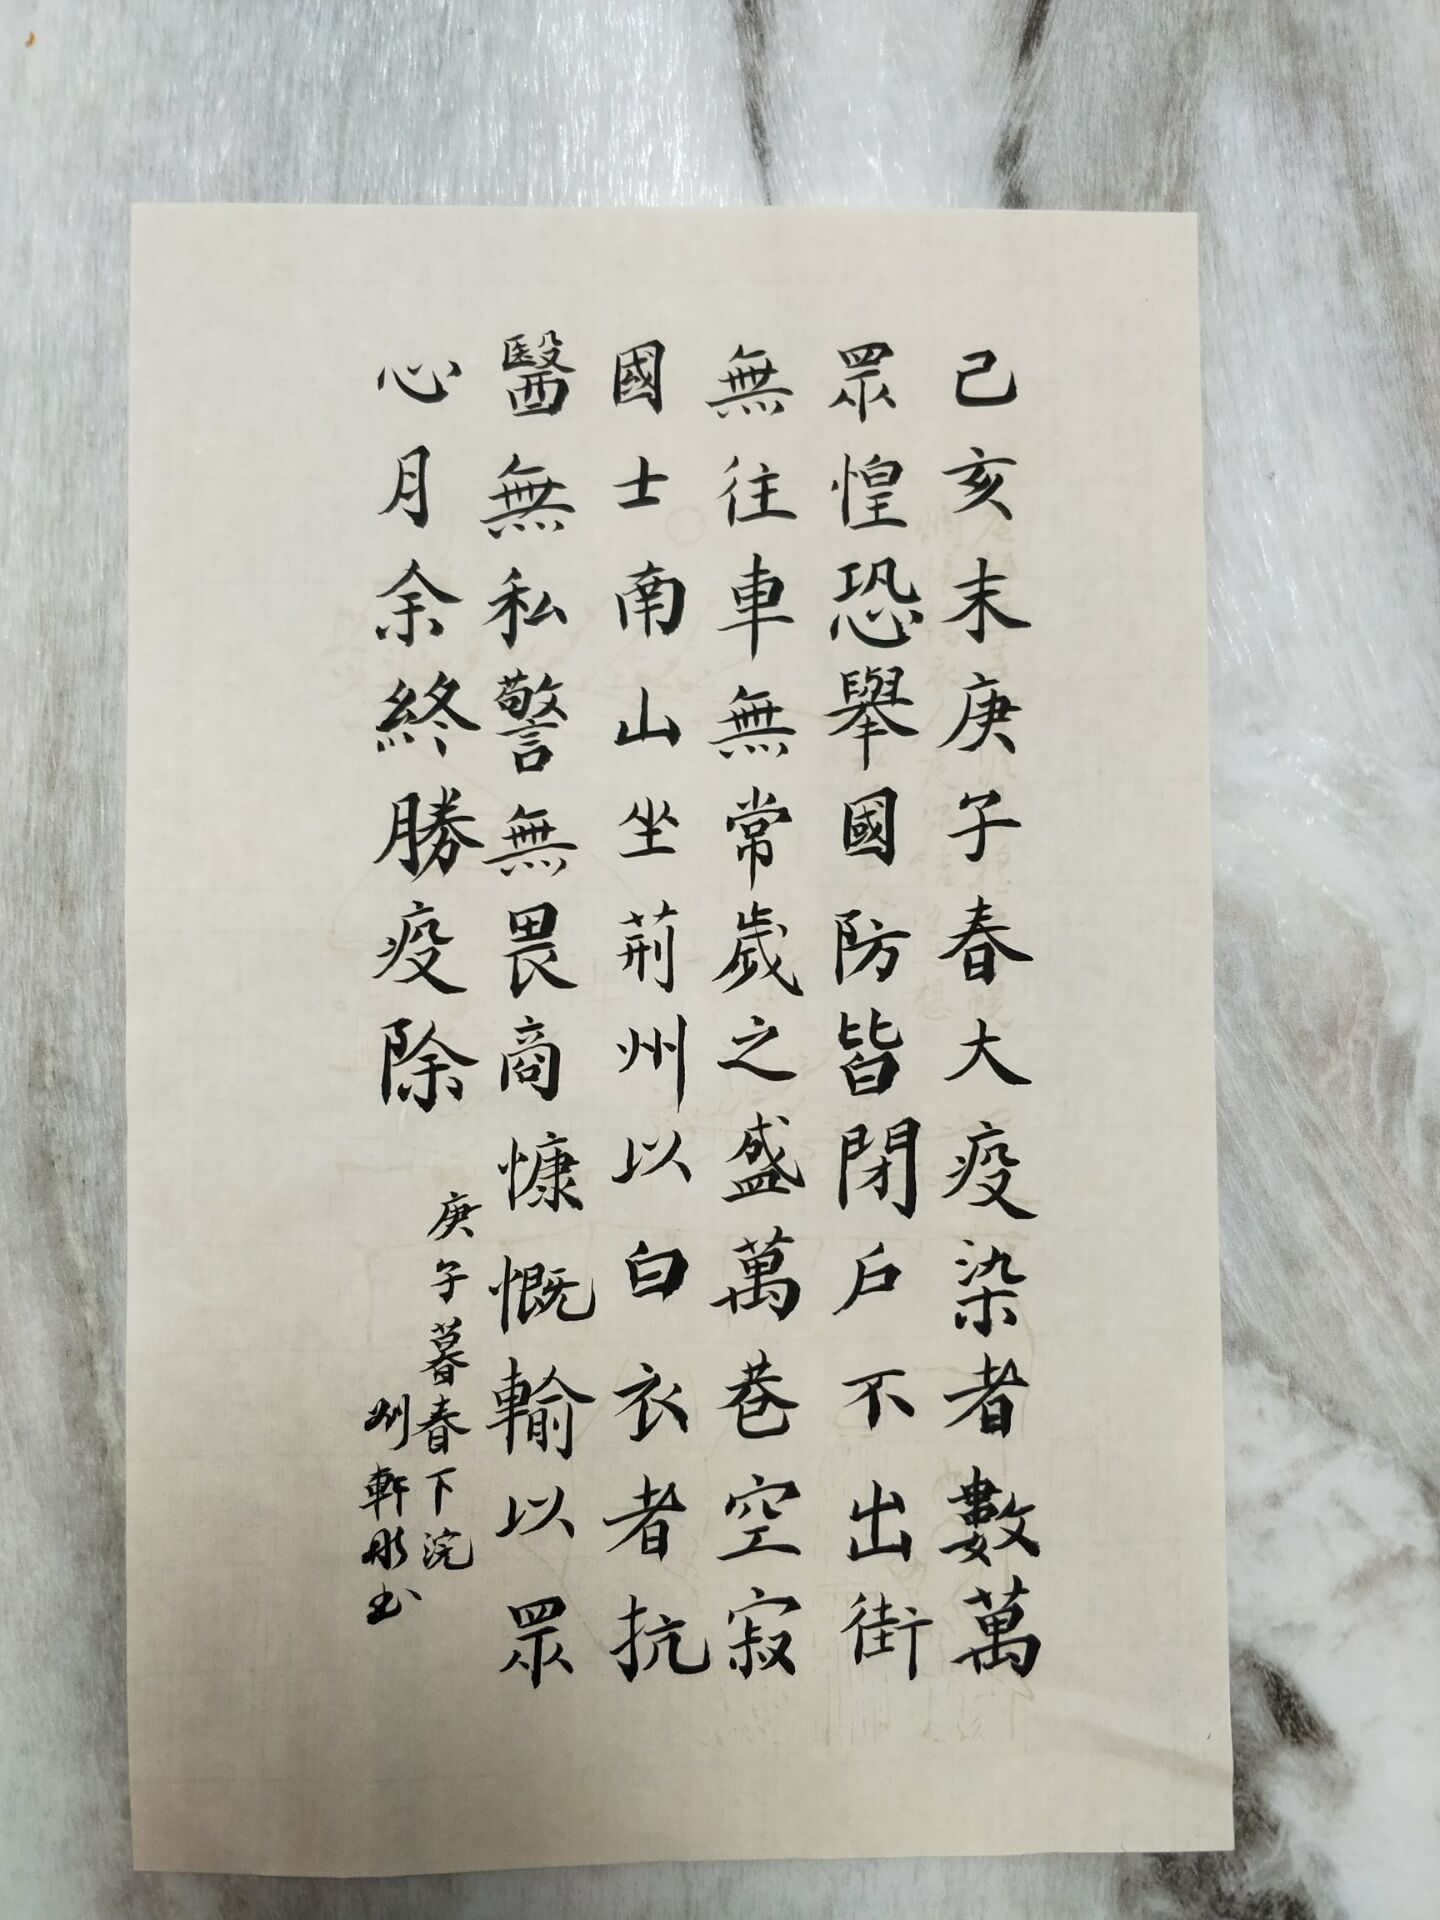 己亥末庚子春大疫染者數萬
眾惶恐舉國防皆閉戶不出街
無往車無常歲之盛萬巷空寂
國士南山坐荊州以白衣者抗
醫無私警無畏商慷慨輸以眾
心月余終勝疫除
庚子暮春下浣
刘軒彤书